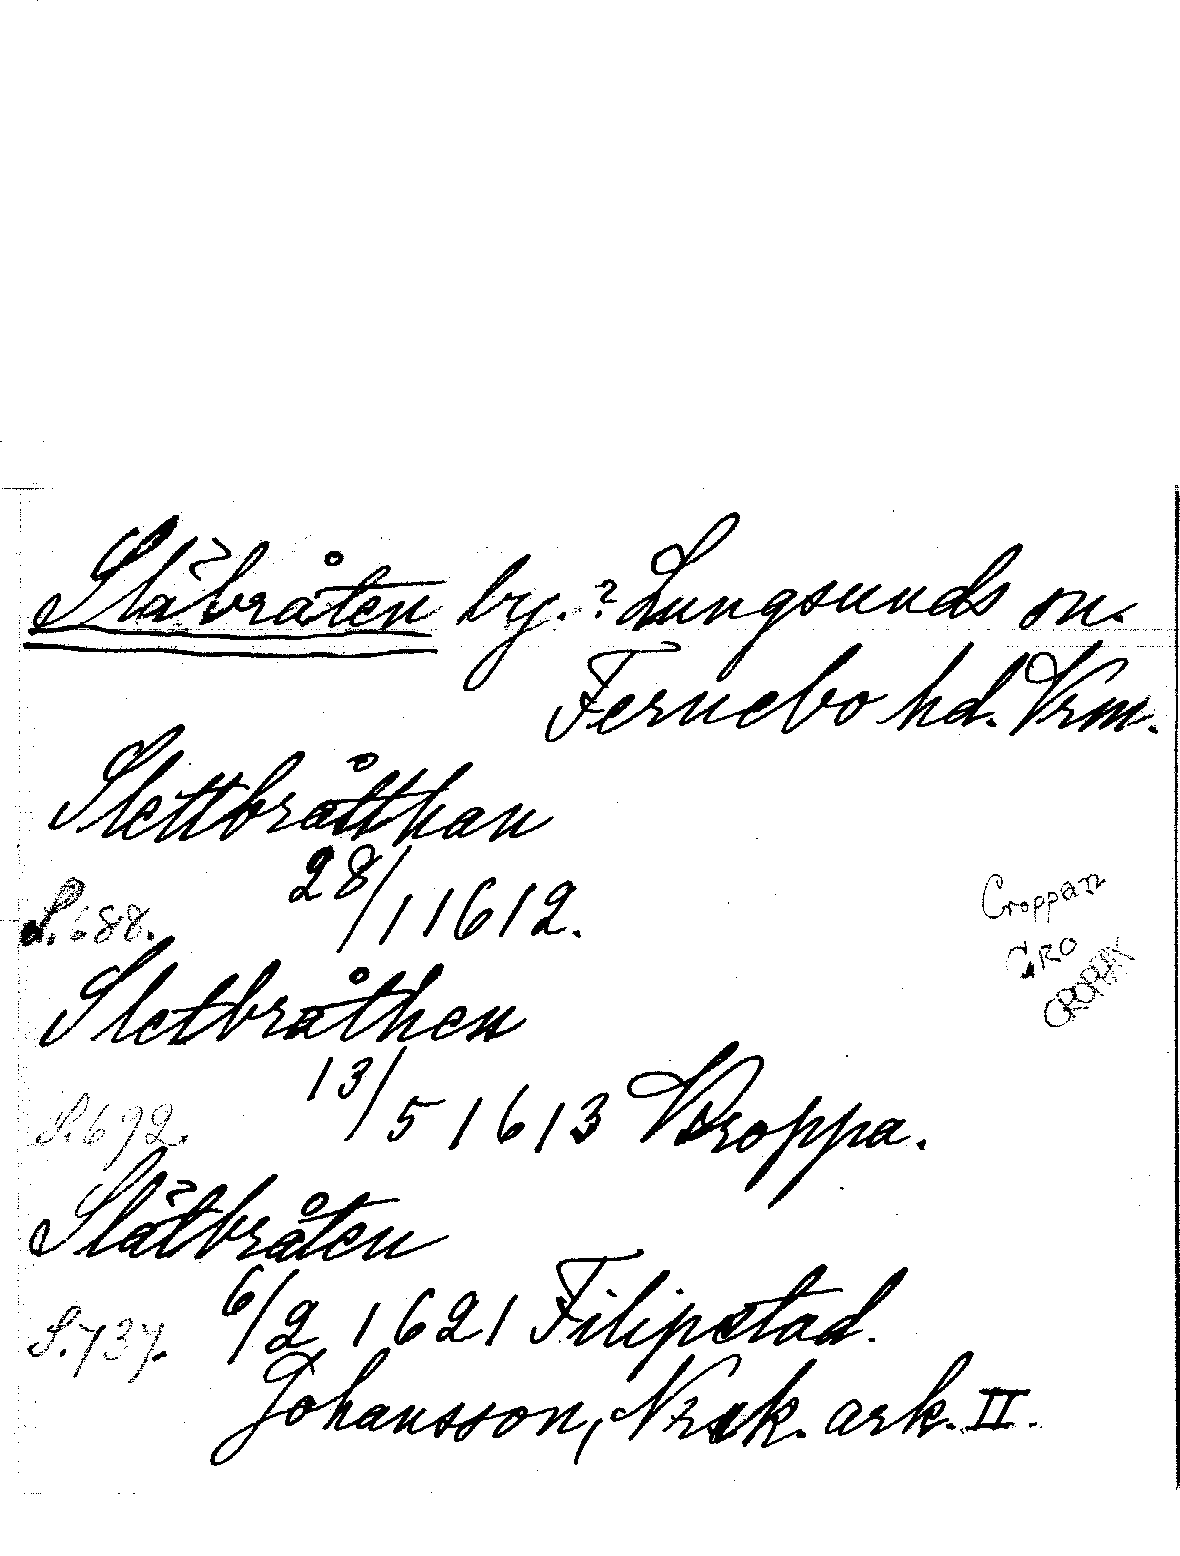 Släbråten by. ? Lungsunds sn.
Fernebo hd. Vrm.
Slettbråtthan
28/1 1612.
S. 688.
Croppan
CRO
CROPPAN
Sletbråthen
13/5 1613 Kroppa.
S. 692.
Slätbråten
6/2 1621 Filipstad.
S. 737.
Johansson, Nrsk. ark. II.